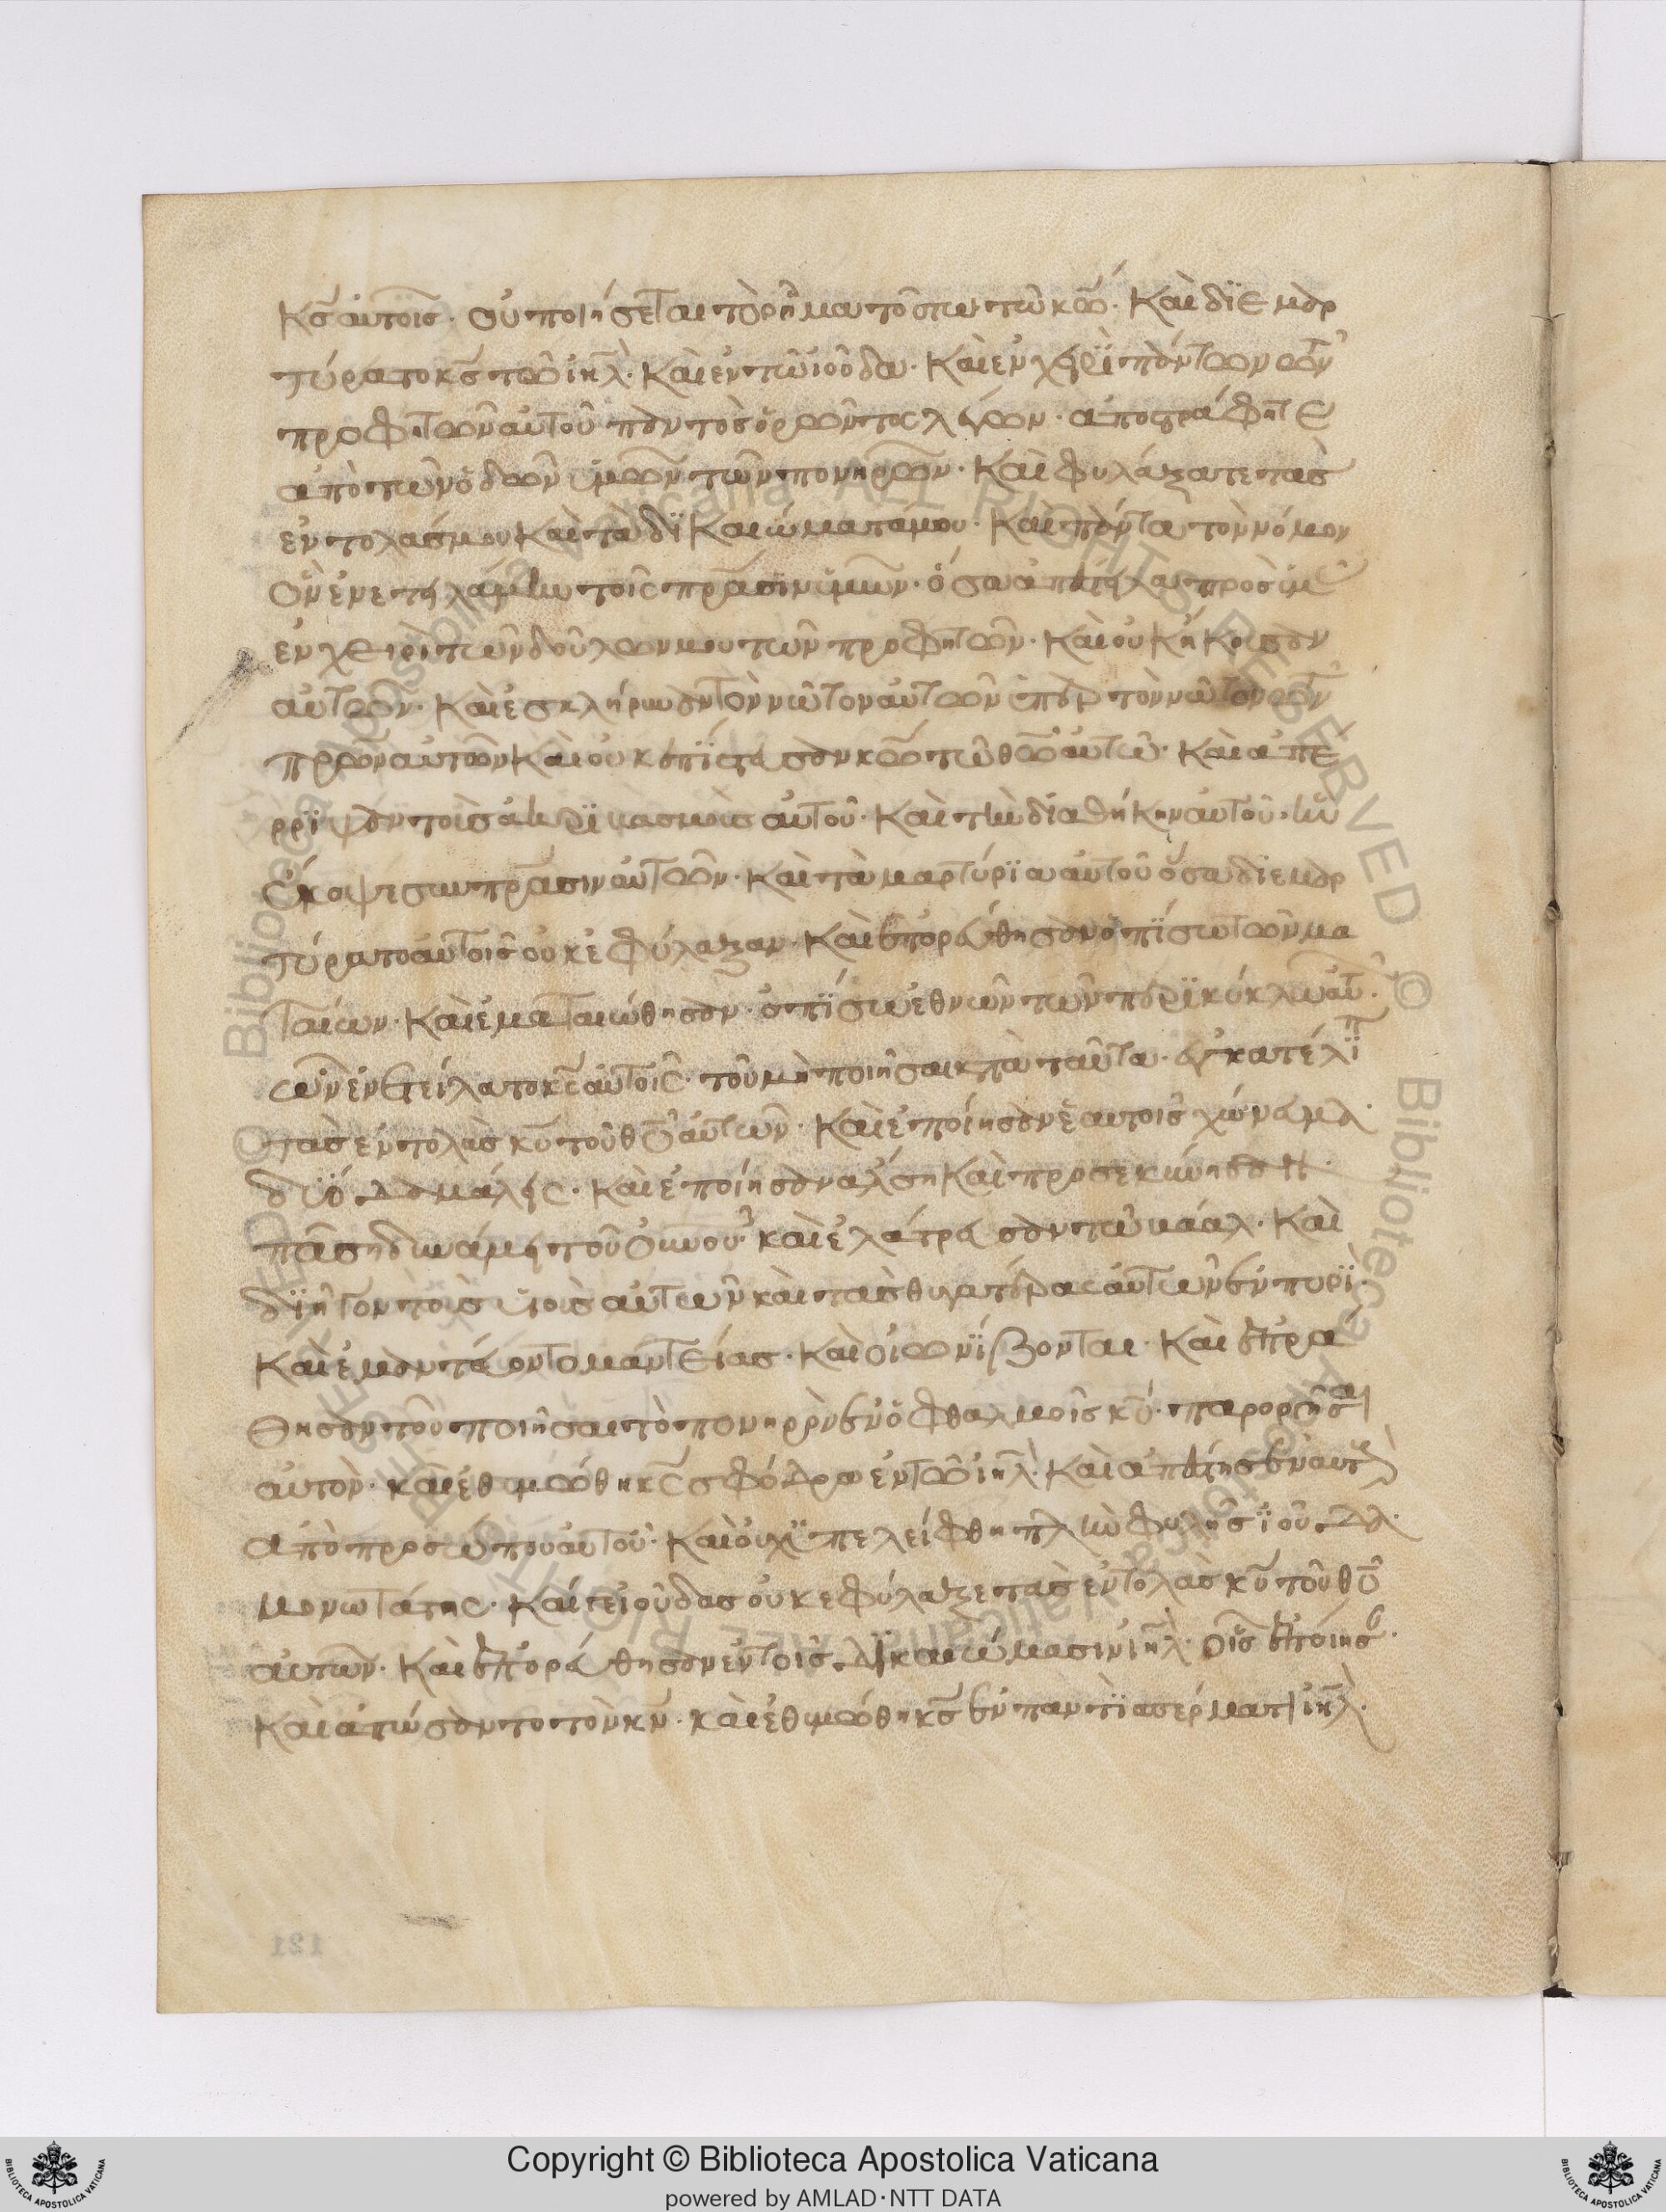 κς αὐτοῖς· οὐ ποιήσεται τὸ ρῆμα τοῦτο τῶ κω· Καὶ διεμαρ
τύρατο κς τῶ ιηλ· Καὶ ἐν τῶ ἰούδα· Καὶ ἐν χειρὶ πάντων τῶν
προφητῶν αὐτοῦ παντὸς ὁρῶντος λέγων· ἀποστράφητε
ἀπὸ τῶν ὁδῶν ὑμῶν τῶν πονηρῶν· Καὶ φυλάξατε τὰς
ἐντολάς μου Καὶ τὰ δικαιώματά μου· Καὶ πάντα τὸν νόμον
ὃν ἐνετειλάμην τοῖς πρασιν ὑμῶν· ὅσα ἀπέστειλα πρὸς ὑμᾶς
ἐν χειρὶ τῶν δούλων μου τῶν προφητῶν· Καὶ οὐκ ἤκουσαν
αὐτῶν· Καὶ ἐσκλήρυναν τὸν νῶτον αὐτῶν ὑπὲρ τὸν νῶτον τῶν
πρων αὐτῶν Καὶ οὐκ ἐπίστευσαν κω τῶ θω αὐτῶν· Καὶ ἀπε
ρρίψαν τοὺς ἀκριβασμοὺς αὐτοῦ· Καὶ τὴν διαθήκην αὐτοῦ· ἣν
ἔκοψε σὺν πρασιν αὐτῶν· Καὶ τὰ μαρτύρια αὐτοῦ ὅσα διεμαρ
τύρατο αὐτοῖς οὐκ ἐφύλαξαν· Καὶ ἐπορεύθησαν ὀπίσω τῶν μα
ταίων· Καὶ ἐματαιώθησαν· ὀπίσω ἐθνῶν τῶν περικύκλω αὐτ·
ὧν ἐνετείλατο κς αὐτοῖς· τοῦ μὴ ποιῆσαι κατὰ ταῦτα· ἐγκατέλιπ
τὰς ἐντολὰς κυ τοῦ θυ αὐτῶν· Καὶ ἐποίησαν ἑαυτοῖς χώνευμα·
δύο δαμάλεις· Καὶ ἐποίησαν ἄλση Καὶ προσεκύνησαν·
πάση δυνάμει τοῦ οὐνου· καὶ ἐλάτρευσαν τῶ βάαλ· Καὶ
διῆγον τοὺς υἱοὺς αὐτῶν καὶ τὰς θυγατέρας αὐτῶν ἐν πυρί·
Καὶ ἐμαντεύοντο μαντείας· Καὶ οἰωνίζονται· Καὶ ἐπρά
θησαν τοῦ ποιῆσαι τὸ πονηρὸν ἐν ὀφθαλμοῖς κυ· παροργίσαι
αὐτόν· καὶ ἐθυμώθη κς σφόδρα ἐν τῶ ιηλ· Καὶ ἀπέστησεν αὐτοὺς
ἀπὸ προσώπου αὐτοῦ· Καὶ οὐχ ὑπελείφθη πλὴν φυλῆς ἰούδα·
μονωτάτης· Καί γε ἰούδας οὐκ ἐφύλαξε τὰς ἐντολὰς κυ τοῦ θυ
αὐτῶν· Καὶ ἐπορεύθησαν ἐν τοῖς δικαιώμασιν ιηλ· οἷς ἐποίησ·
Καὶ ἀπώσαντο τὸν κν· καὶ ἐθυμώθη κς ἐν παντὶ σπέρματι ιηλ·
121
Copyright © Biblioteca Apostolica Vaticana
powered by AMLAD·NTT DATA